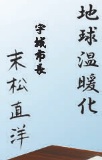 地球温暖化
宇城市長
末松直洋